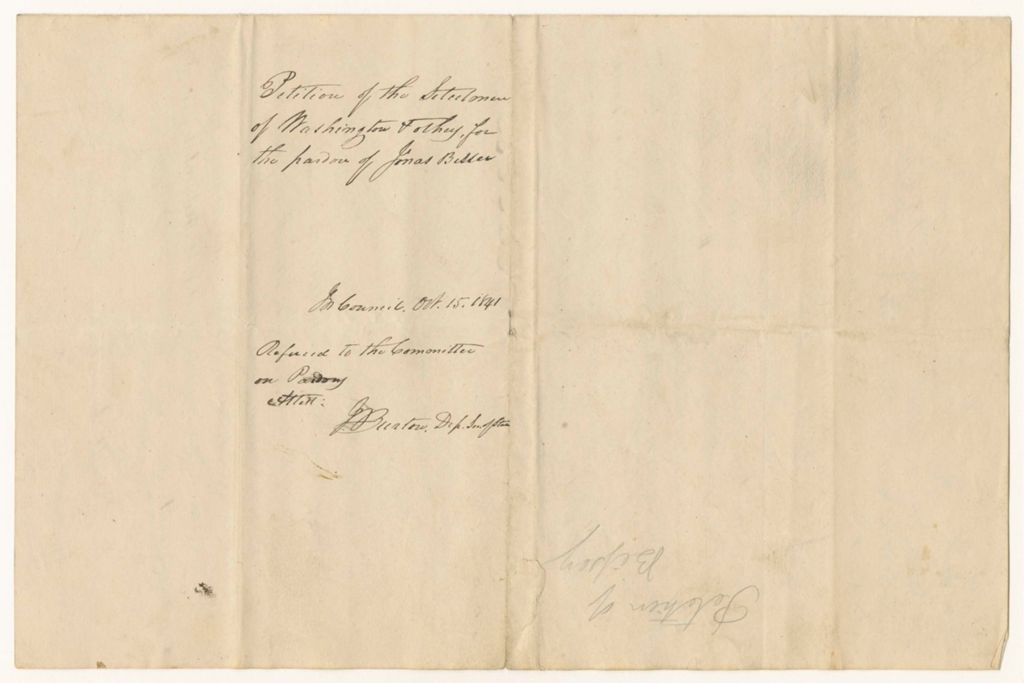 Petition of the Selectmen
of Washington & others, for
the pardon of Jonas
In Council, Oct. 15. 1841
Referred to the Committee
on Pardons
Attest:
Dep. Sec. of State
Petition of